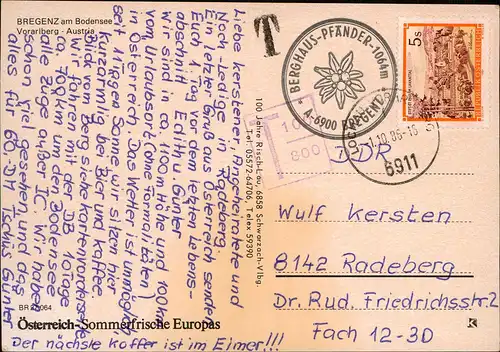 BREGENZ am Bodensee
Vorarlberg - Austria
Liebe Kerstener, Angeheiratete und
Noch-Ledige in Radeberg.
Ein letzter Gruß aus Österreich sendet
Euch 1. Tag vor dem letzten Lebens-
abschnitt Edith u. Günter
wir sind in ca 1100 m Höhe und 100 km
vom Urlaubsort (ohne Formalitäten)
in Österreich. Das Wetter ist unmöglich
seit 11 Tagen Sonne wir sitzen hier
kurzärmlig bei Bier und Kaffee
Blick vom Berg siehe Kartenvorderseite
Wir fahren mit der DB 10 Tage
ca. 700 km um den Bodensee
alle Züge außer IC. Wir haben
schon viel gesehen und das
alles für 60,-DM. Tschüs Günter
Der nächste Koffer ist im Eimer!!!
BR 22064
Österreich-Sommerfrische Europas
100 Jahre Risch-Lau, 6858 Schwarzach-Vlbg.
Tel. 05572-64706, Telex 59390
T
BERGHAUS-PFÄNDER-1064m
A-6900 BREGENZ
T
10
800
5s
1.10.86-16
6911
DDR
Wulf Kersten
8142 Radeberg
Dr. Rud. Friedrichsstr. 2
Fach 12-3D